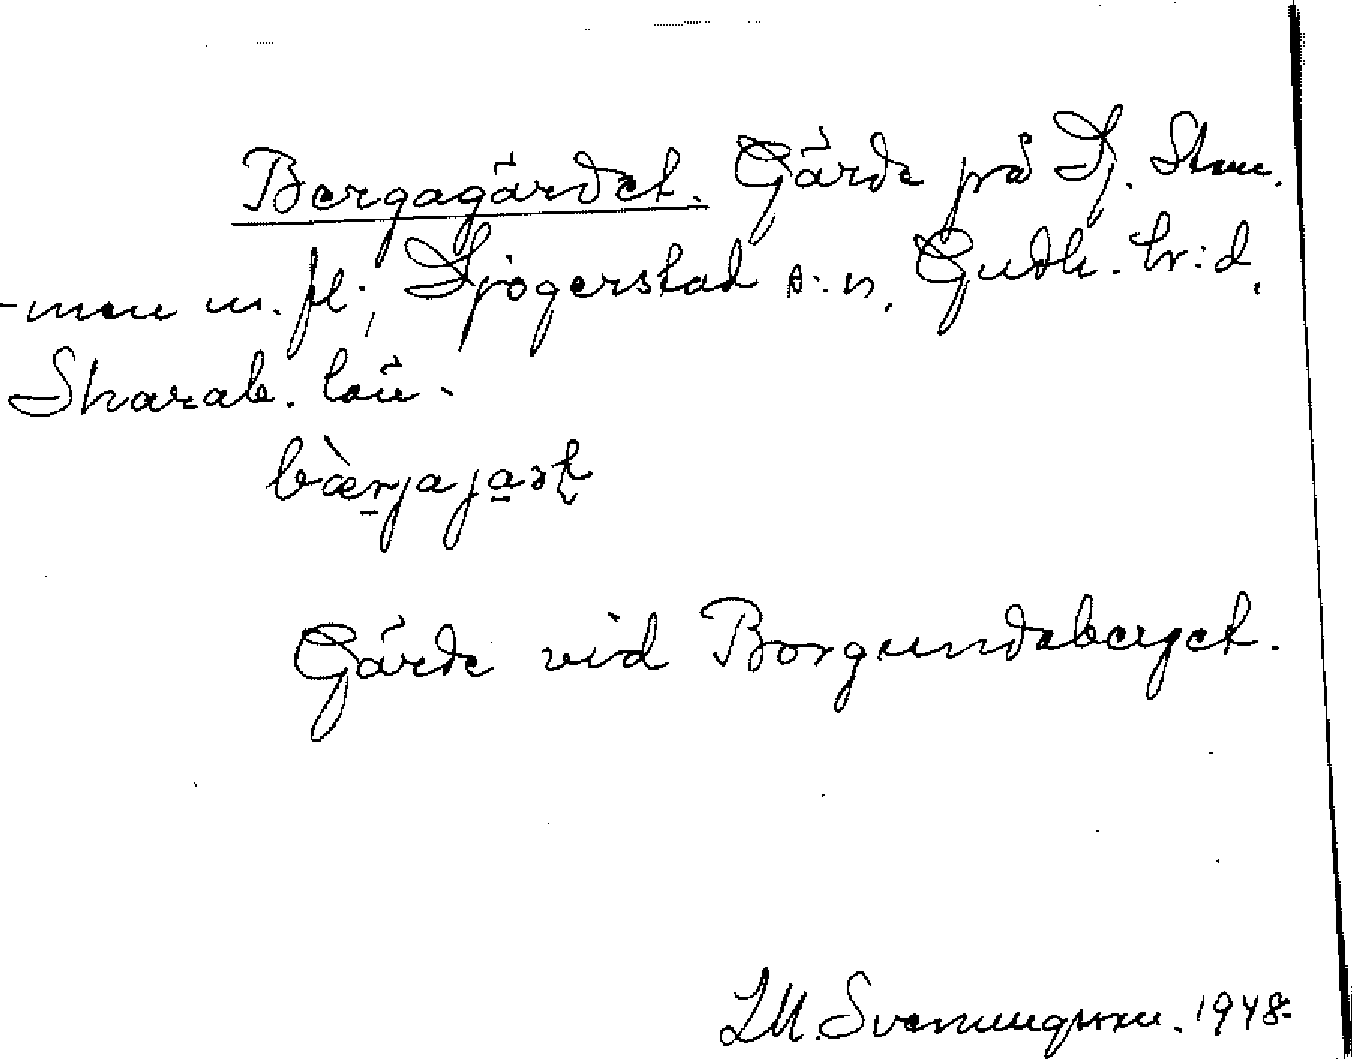 Bergagärdet. Gärde på Dj. Stom-
-men m. fl.; Djögerstad s:n, Gudh. hr:d,
Skarab. län.
bæ̀r̠jaja̠rt
Gärde vid Borgundaberget.
I.M. Svenungsson. 1948.